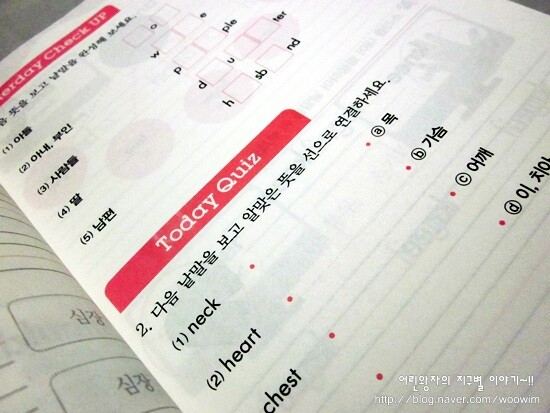 erday Check UP
뜻을 보고 낱말을 완성해 보세요.
(1) 아들
(2) 아내, 부인
(3) 사람들
(4) 딸
(5) 남편
o
w
e
p
ple
d
u
ter
h
sb
nd
Today Quiz
2. 다음 낱말을 보고 알맞은 뜻을 선으로 연결하세요.
(1) neck
(2) heart
chest
ⓐ 목
ⓑ 가슴
ⓒ 어깨
ⓓ 이, 치아
심장
심장
어린왕자의 지구별 이야기~!!
http://blog.naver.com/woowim